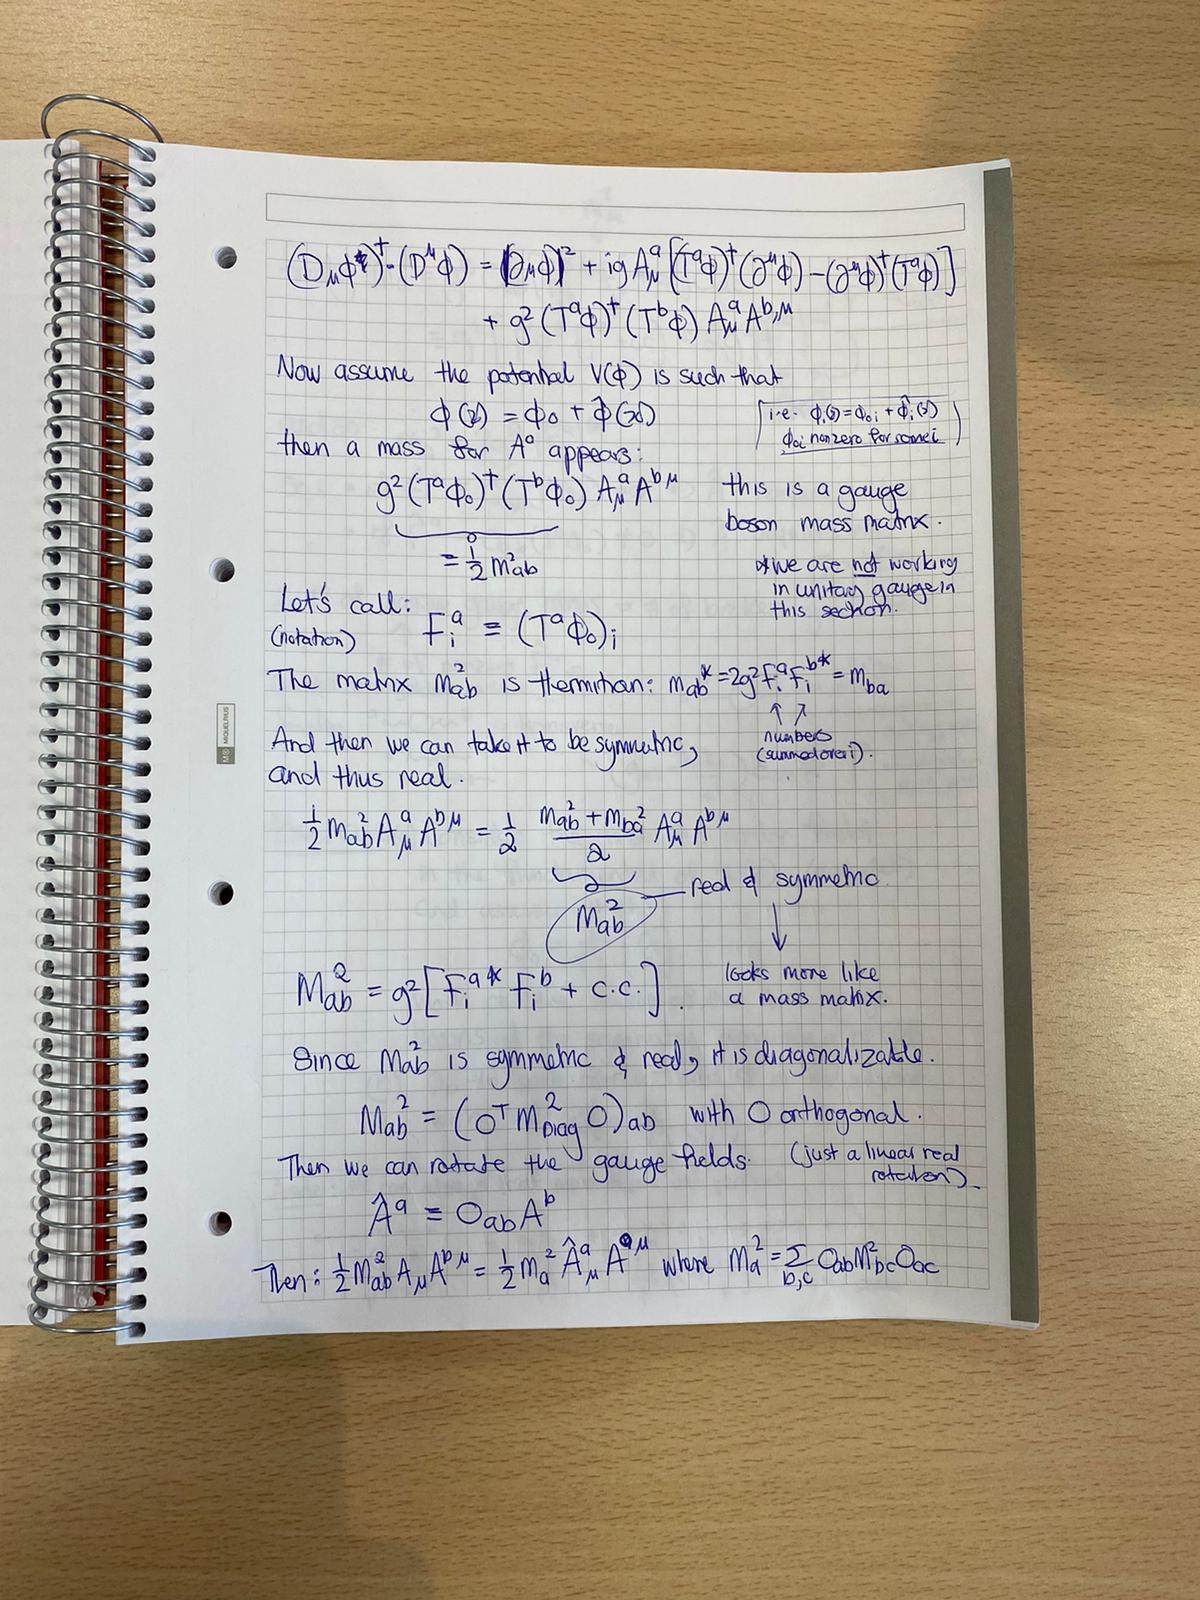 (DμΦ)†·(D^μΦ) = |∂μΦ|² + ig A^a_μ [(T^aΦ)†(∂^μΦ) − (∂^μΦ)†(T^aΦ)]
+ g² (T^aΦ)†(T^bΦ) A^a_μ A^{b,μ}
Now assume the potential V(Φ) is such that
Φ(x) = Φ₀ + Φ̂(x)
i.e. Φᵢ(x) = Φ₀ᵢ + Φ̂ᵢ(x)
Φ₀ᵢ nonzero for some i
then a mass for A^a appears:
g² (T^aΦ₀)† (T^bΦ₀) A^a_μ A^{bμ}
= ½ m²_ab
this is a gauge
boson mass matrix.
* we are not working
in unitary gauge in
this section.
Let's call:
(notation)
F_i^a ≡ (T^aΦ₀)_i
The matrix m²_ab is Hermitian: m_ab* = 2g² F_i^a F_i^{b*} = m_ba
↑ ↗
numbers
(summed over i).
And then we can take it to be symmetric,
and thus real.
½ m²_ab A^a_μ A^{bμ} = ½ (m²_ab + m²_ba)/2 A^a_μ A^{bμ}
M²_ab
real & symmetric
↓
looks more like
a mass matrix.
M²_ab = g² [F_i^{a*} F_i^b + c.c.].
Since M²_ab is symmetric & real, it is diagonalizable.
M²_ab = (O^T m²_Diag O)_ab with O orthogonal.
Then we can rotate the gauge fields. (just a linear real
rotation).
Â^a ≡ O_ab A^b
Then: ½ m²_ab A_μ A^{bμ} = ½ m_a² Â^a_μ A^{aμ} where m_a² = Σ_{b,c} O_ab M²_bc O_ac
M® MIQUELRIUS